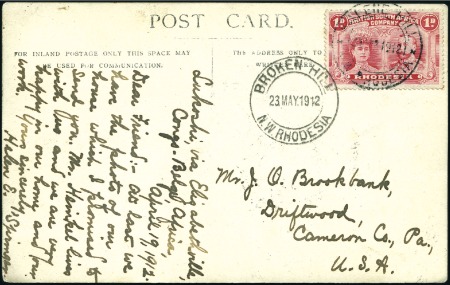 POST CARD.
FOR INLAND POSTAGE ONLY THIS SPACE MAY
BE USED FOR COMMUNICATION.
THE ADDRESS ONLY TO
BRITISH SOUTH AFRICA
COMPANY
1d 1d
RHODESIA
BROKEN HILL
23 MAY. 1912
N.W. RHODESIA
Mr. J. O. Brookbank,
Driftwood,
Cameron Co., Pa.,
U.S.A.
via Elizabethville,
Congo Belge, Africa,
April 19, 1912.
Dear Friend:- At last we
have the photo of our
home which I promised to
send you. Mr. Heinkel lives
with us and we are very
happy in our home and our
work. Yours sincerely,
Helen E. Springer